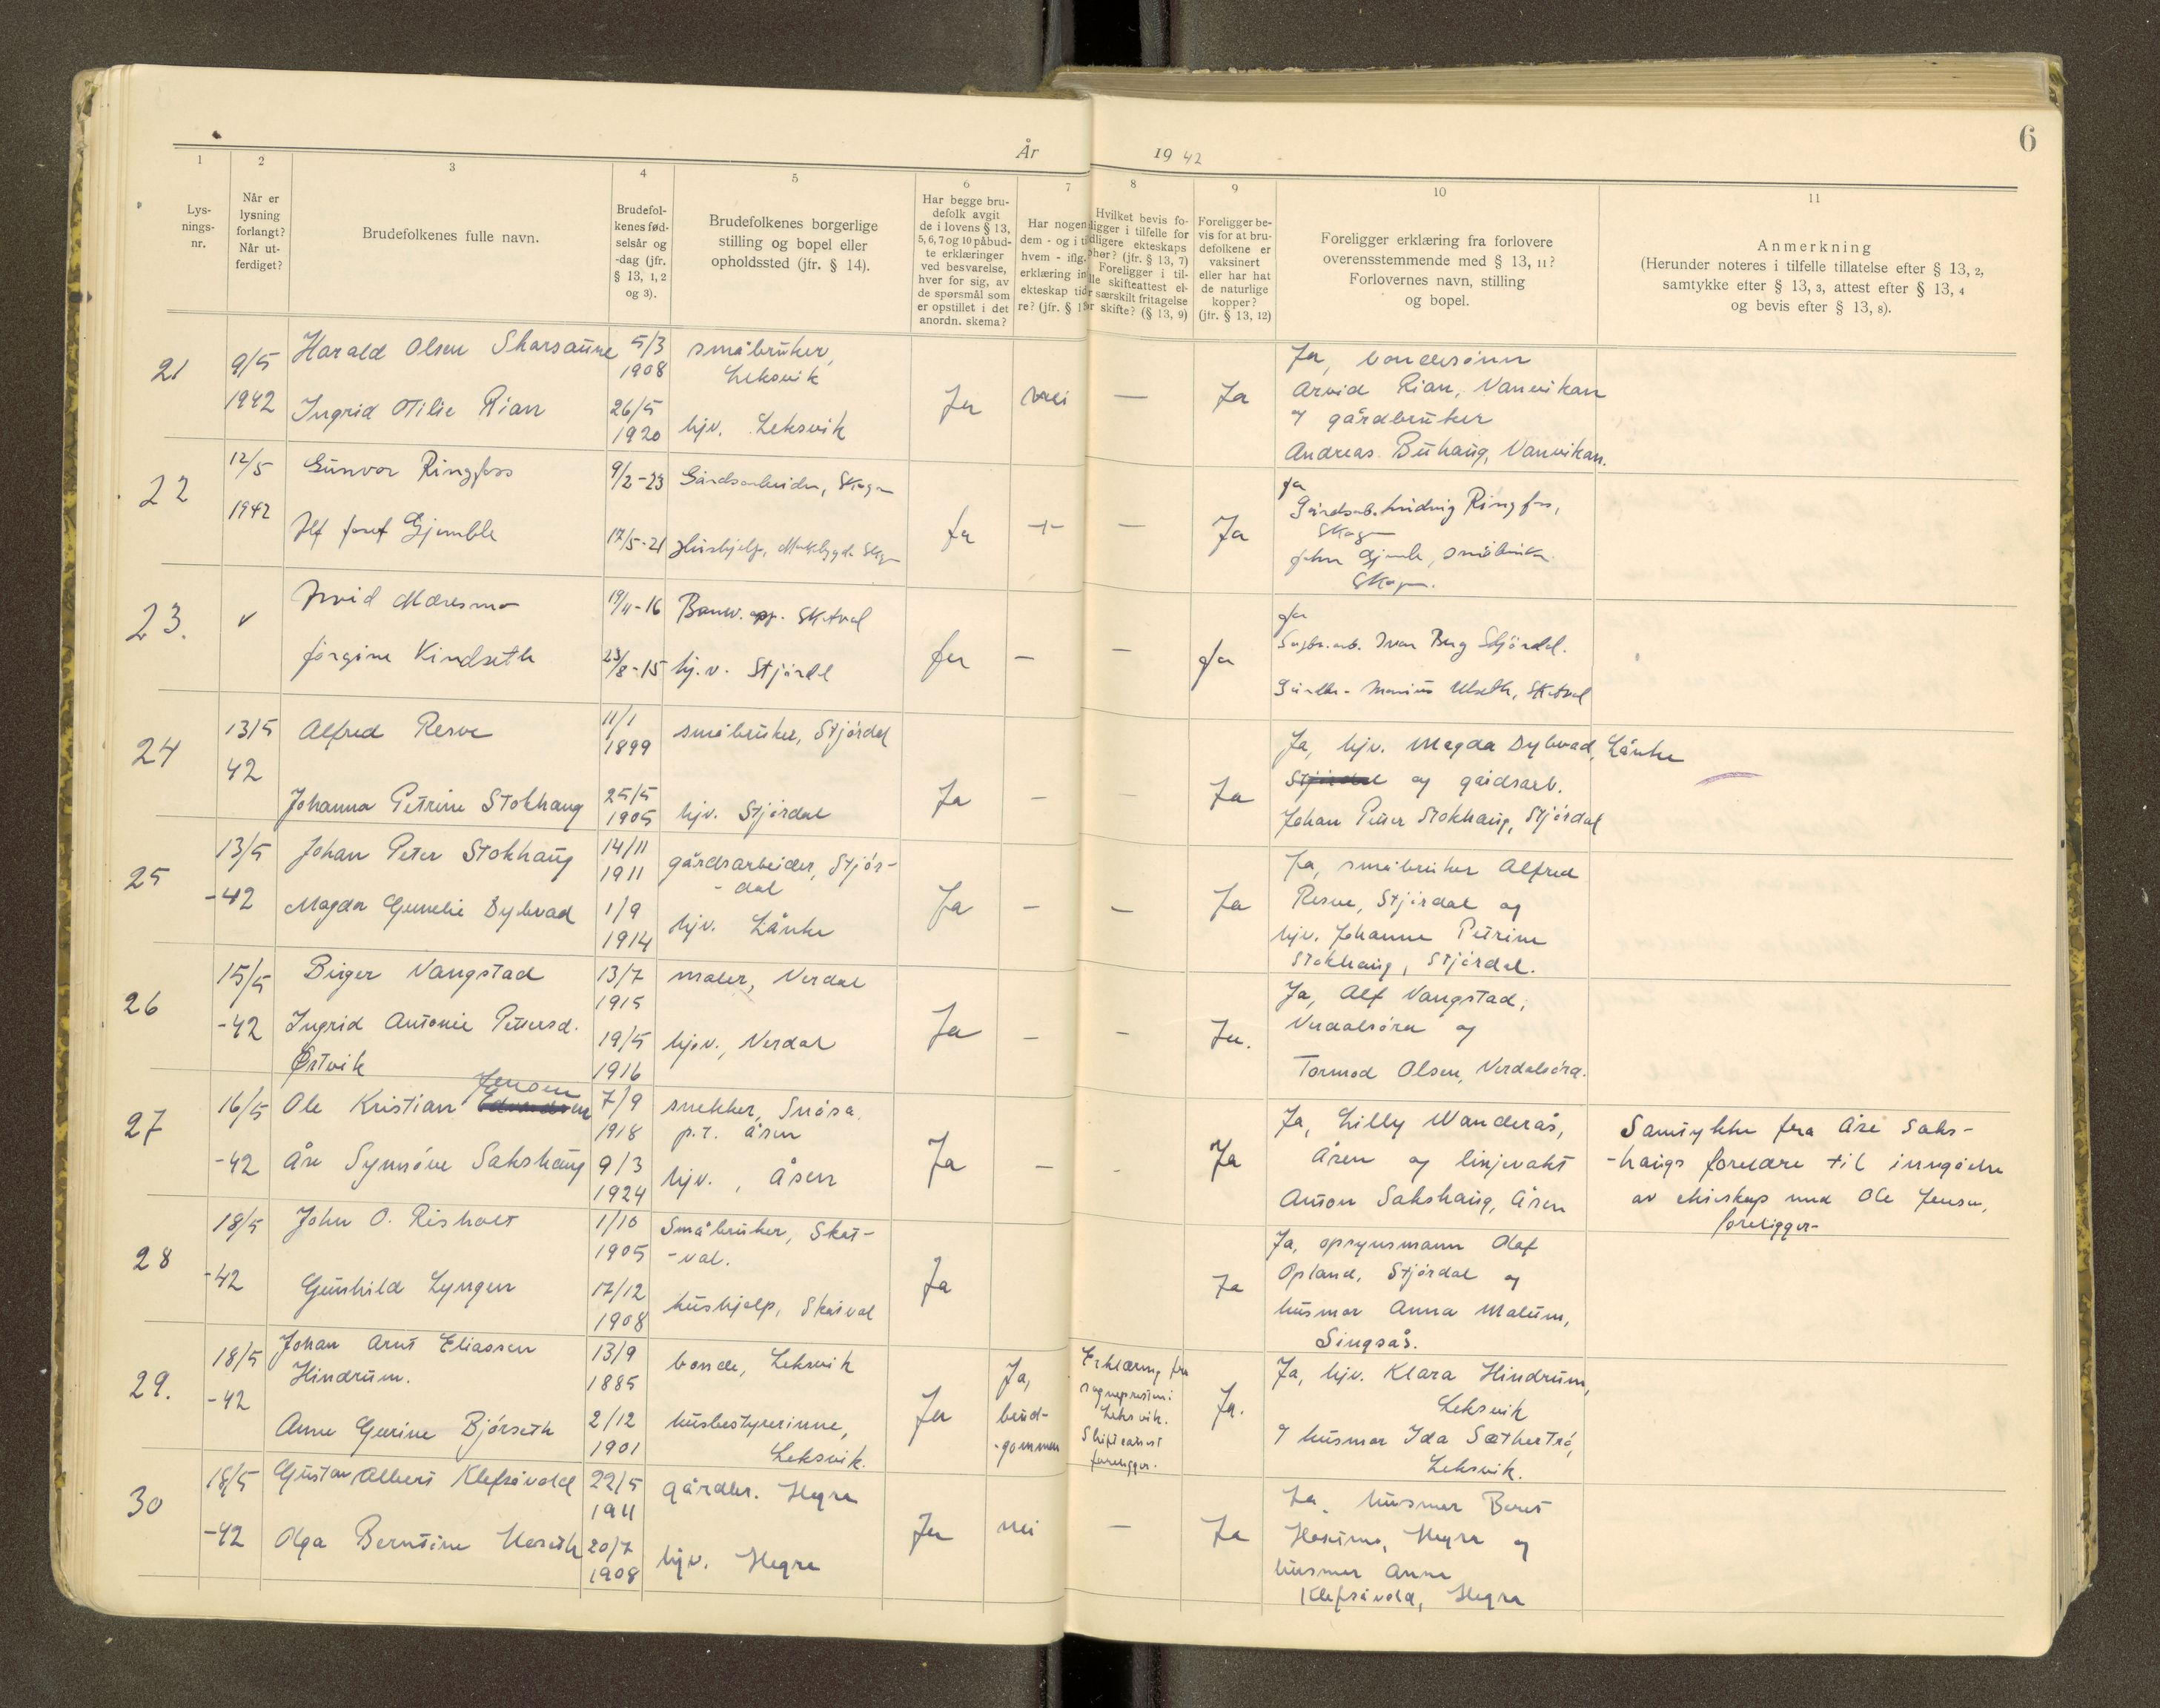 År 1942
6
1
2
3
4
5
6
7
8
9
10
11
Lys-
nings-
nr.
Når er
lysning
forlangt?
Når ut-
ferdiget?
Brudefolkenes fulle navn.
Brudefol-
kenes fød-
selsår og
-dag (jfr.
§ 13, 1, 2
og 3).
Brudefolkenes borgerlige
stilling og bopel eller
opholdssted (jfr. § 14).
Har begge bru-
defolk avgit
de i lovens § 13,
5, 6, 7 og 10 påbud-
te erklæringer
ved besvarelse,
hver for sig, av
de spørsmål som
er opstillet i det
anordn. skema?
Har nogen
dem - og i t
hvem - iflg.
erklæring in
ekteskap tid
re? (jfr. § 1
Hvilket bevis fo-
ligger i tilfelle for
dligere ekteskaps
phør? (jfr. § 13, 7)
Foreligger i til-
lle skifteattest el-
r særskilt fritagelse
r skifte? (§ 13, 9)
Foreligger be-
vis for at bru-
defolkene er
vaksinert
eller har hat
de naturlige
kopper?
(jfr. § 13, 12)
Foreligger erklæring fra forlovere
overensstemmende med § 13, 11?
Forlovernes navn, stilling
og bopel.
Anmerkning
(Herunder noteres i tilfelle tillatelse efter § 13, 2,
samtykke efter § 13, 3, attest efter § 13, 4
og bevis efter § 13, 8).
21
9/5
1942
Harald Olsen Skarsaune
Ingrid Otilie Rian
5/3
1908
26/5
1920
småbruker,
Leksvik
hjv. Leksvik
Ja
nei
—
Ja
Ja, bondesønn
Arvid Rian, Vanvikan
og gårdbruker
Andreas Buhaug, Vanvikan.
22
12/5
1942
Gunvor Ringfoss
Gjemble
9/2-23
17/5-21
Gårdsarbeider, Skogn
Hushjelp, Skogn
Ja
—
Ja
Ja
Ringfoss,
Skogn
John småbruker
Skogn.
23.
Arvid Mæresmo
Jørgine Kindseth
19/11-16
23/8-15
Skatval
hj.v. Stjørdal
Ja
—
—
Ja
Ja
Ivar Berg Stjørdal.
Marius Skatval
24
13/5
42
Alfred Resve
Johanna Petrine Stokhaug
11/1
1899
25/5
1905
småbruker, Stjørdal
hjv. Stjørdal
Ja
—
—
Ja
Ja, hjv. Magda Dybvad, Lånke
Stjørdal og gårdsarb.
Johan Peter Stokhaug, Stjørdal
25
13/5
-42
Johan Peter Stokhaug
Magda Dybvad
14/11
1911
1/9
1914
gårdsarbeider, Stjør-
-dal
hjv. Lånke
Ja
—
—
Ja
Ja, småbruker Alfred
Resve, Stjørdal og
hjv. Johanne Petrine
Stokhaug, Stjørdal.
26
15/5
-42
Birger Vangstad
Ingrid Antonie Pettersd.
Østvik
13/7
1915
19/5
1916
maler, Verdal
hjv., Verdal
Ja
—
—
Ja.
Ja, Alf Vangstad,
Verdalsøra og
Tormod Olsen, Verdalsøra.
27
16/5
-42
Jensen
Ole Kristian
Åse Synnøve Sakshaug
7/9
1918
9/3
1924
snekker, Snåsa
p.t. Åsen
hjv., Åsen
Ja
—
-
Ja
Ja, Lilly Wanderås,
Åsen og linjevakt
Anton Sakshaug, Åsen
Samtykke fra Åse Saks-
-haugs foreldre til inngåelse
av ekteskap med Ole Jensen,
foreligger-
28
18/5
-42
John O. Risholt
Gunhild Lyngen
1/10
1905
17/12
1908
Småbruker, Skat-
-val.
hushjelp, Skatval
Ja
Ja
Ja, opsynsmann Olaf
Opland, Stjørdal og
husmor Anna Malum,
Singsås.
29.
18/5
-42
Johan Arnt Eliassen
Hindrum.
Anne Gurine Bjørseth
13/9
1885
2/12
1901
bonde, Leksvik
husbestyrerinne,
Leksvik.
Ja
Ja,
brud-
-gommen
Erklæring fra
sogneprest i
Leksvik.
Skifteattest
foreligger.
Ja.
Ja, hjv. Klara Hindrum,
Leksvik
og husmor Ida Sæthertrø,
Leksvik.
30
18/5
-42
Gustav Albert Klefsåvold
Olga Berntine
22/5
1911
20/7
1908
gårdbr. Hegra
hjv. Hegra
Ja
nei
—
Ja
Ja, husmor Beret
Hegra og
husmor Anna
Klefsåvold, Hegra